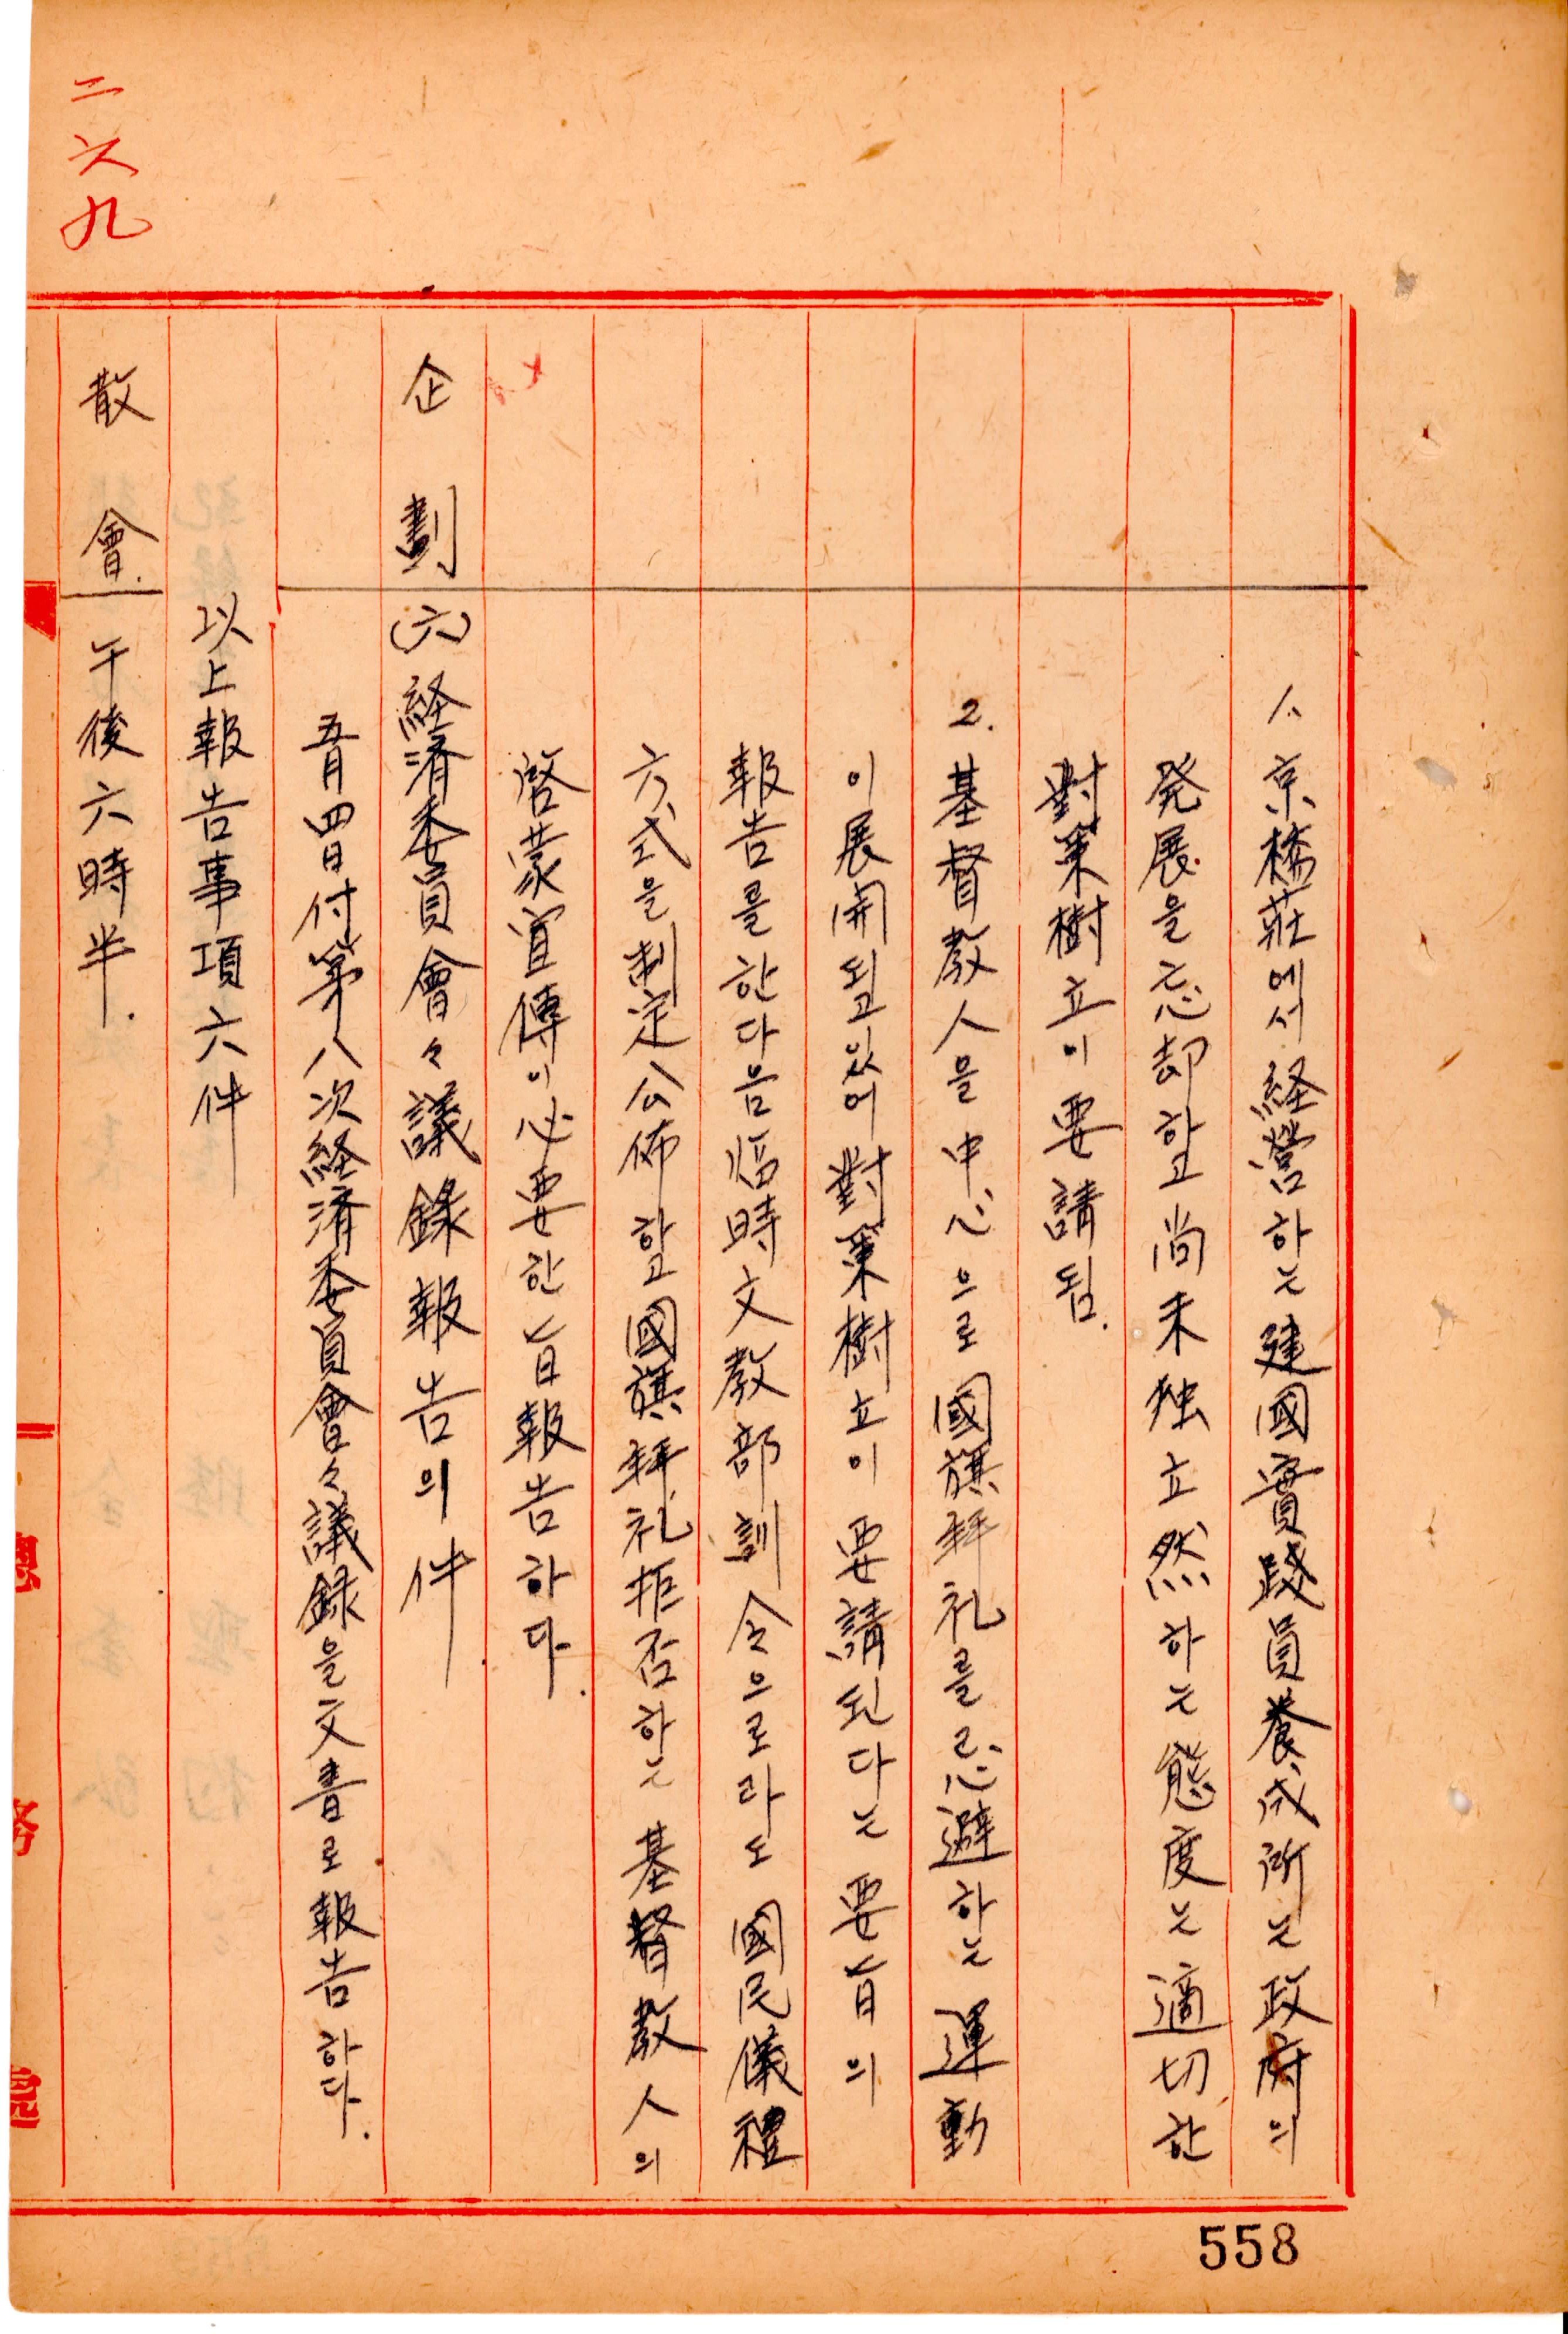 1. 京橋莊에서 経營하는 建國實踐員養成所는 政府의
発展을 忘却하고 尚未独立然하는 態度는 適切한
對策樹立이 要請됨.
2. 基督教人을 中心으로 國旗拜礼를 忌避하는 運動
이 展開되고있어 對策樹立이 要請된다는 要旨의
報告를 한다음 臨時文教部訓令으로라도 國民儀禮
六、式을 制定公佈하고 國旗拜礼拒否하는 基督教人의
啓蒙宣傳이 必要한 旨報告하다.
企劃 (六) 経済委員會々議錄報告의 件
五月四日付第八次経済委員會々議録을 文書로 報告하다.
以上報告事項六件
散會. 午後六時半.
二六九
558